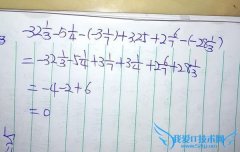 -32 1/3 - 5 1/4 - (-3 1/7) + 3.25 + 2 6/7 - (-28 1/3)
= -32 1/3 - 5 1/4 + 3 1/7 + 3 1/4 + 2 6/7 + 28 1/3
= -4 - 2 + 6
= 0
我爱IT技术网